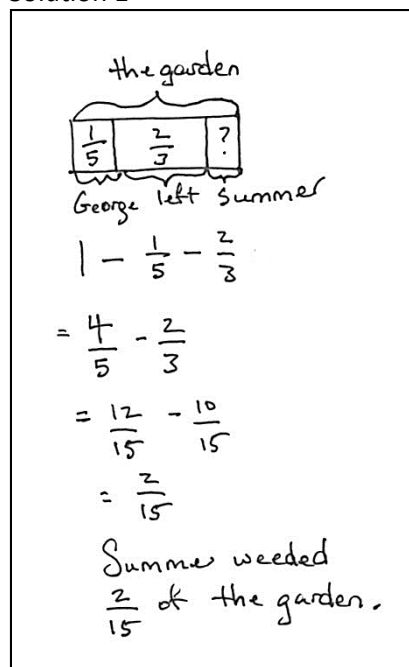 the garden
1/5 2/3 ?
George left Summer
1 - 1/5 - 2/3
= 4/5 - 2/3
= 12/15 - 10/15
= 2/15
Summer weeded
2/15 of the garden.